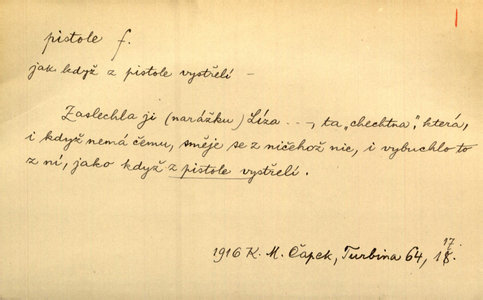 1
pistole f.
jak když z pistole vystřelí —
Zaslechla ji (narážku) Líza . . –, ta „chechtna", která,
i když nemá čemu, směje se z ničehož nic, i vybuchlo to
z ní, jako když z pistole vystřelí.
17
1916 K. M. Čapek, Turbina 64, 18.